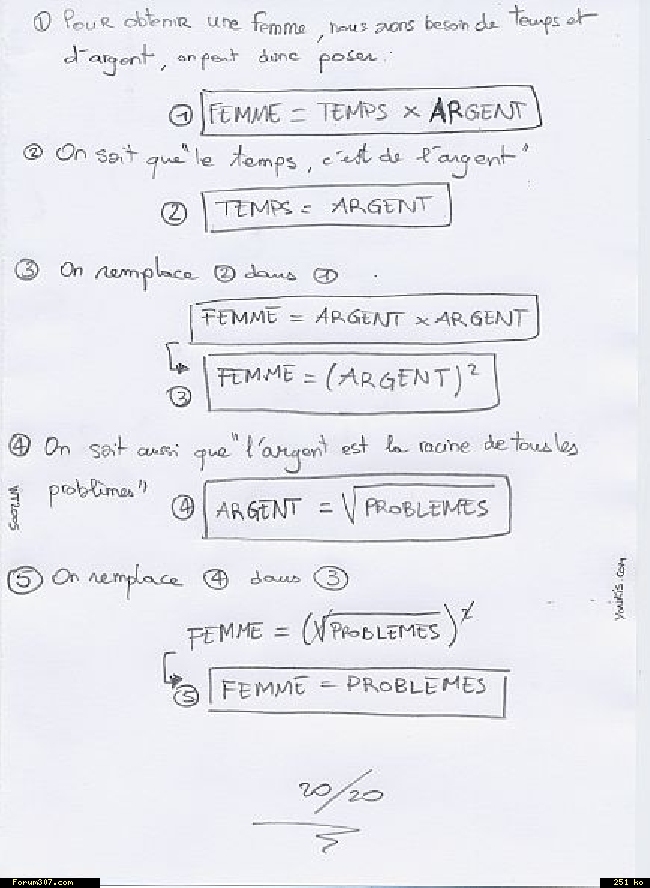 ① Pour obtenir une femme, nous avons besoin de temps et
d'argent, on peut donc poser :
① FEMME = TEMPS × ARGENT
② On sait que "le temps, c'est de l'argent"
② TEMPS = ARGENT
③ On remplace ② dans ① .
FEMME = ARGENT × ARGENT
③ FEMME = (ARGENT)²
④ On sait aussi que "l'argent est la racine de tous les
problèmes"
④ ARGENT = √PROBLEMES
⑤ On remplace ④ dans ③
FEMME = (√PROBLEMES)²
⑤ FEMME = PROBLEMES
20/20
Forum307.com
251 ko